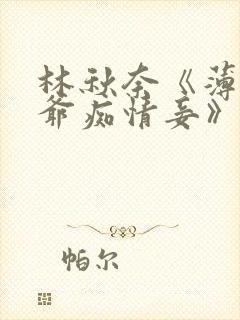 林秋奈《薄
爷痴情妾》
帕尔